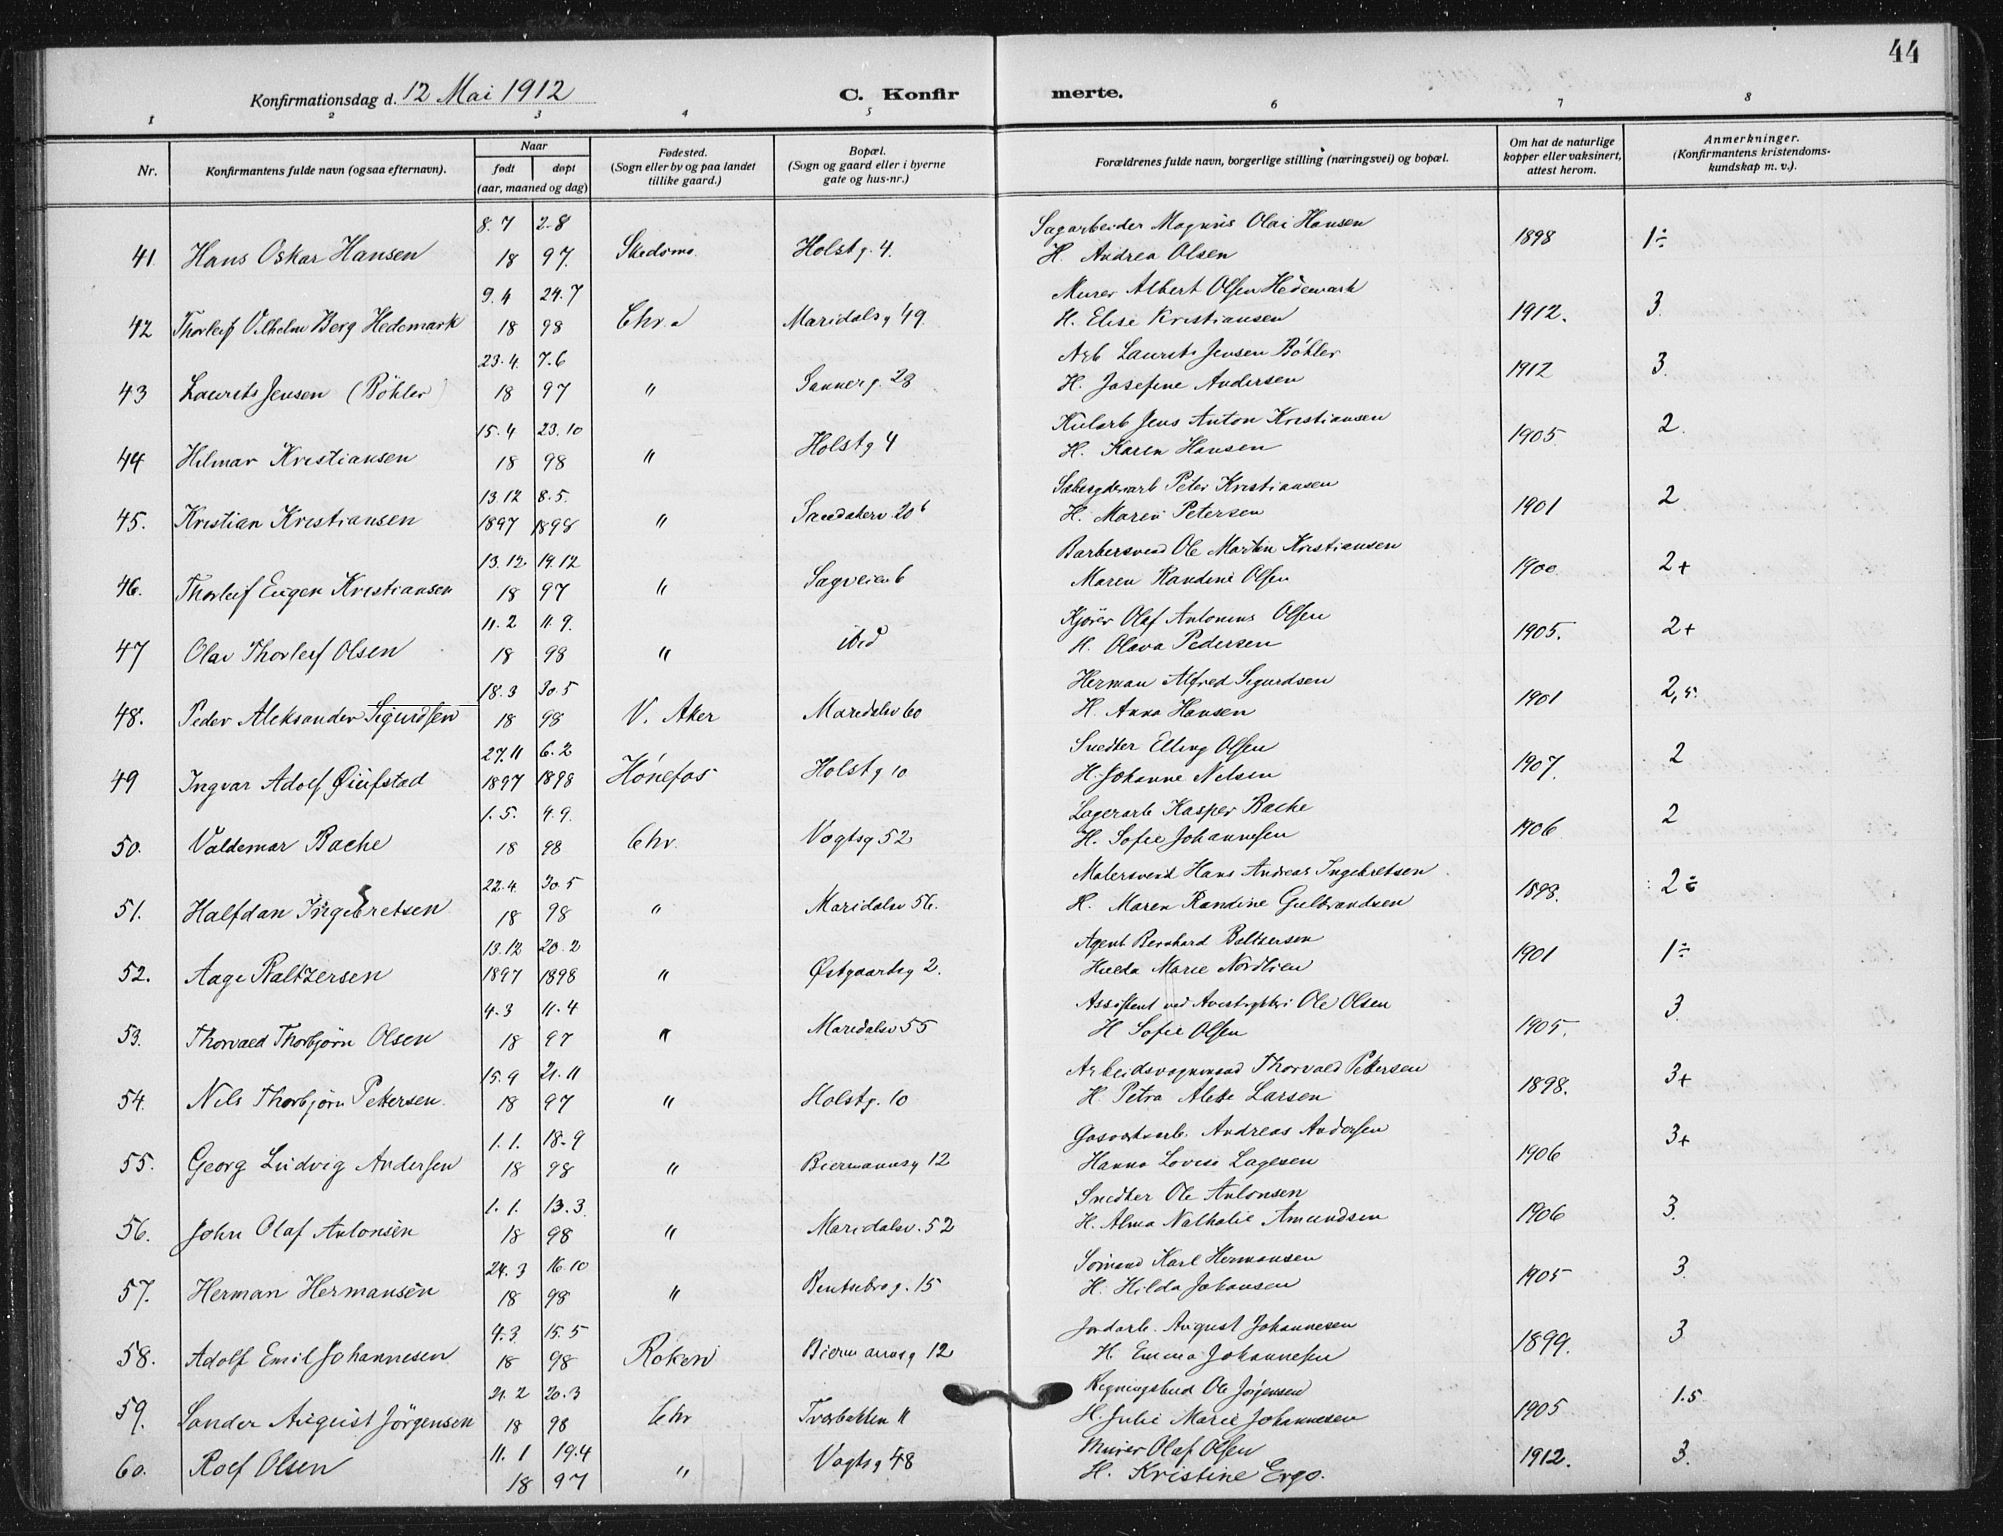 44
Konfirmationsdag d. 12 Mai 1912 C. Konfir merte.
1 2 3 4 5 6 7 8
Nr. Konfirmantens fulde navn (ogsaa efternavn). Naar født døpt (aar, maaned og dag) Fødested. (Sogn eller by og paa landet tillike gaard.) Bopæl. (Sogn og gaard eller i byerne gate og hus-nr.) Forældrenes fulde navn, borgerlige stilling (næringsvei) og bopæl. Om hat de naturlige kopper eller vaksinert, attest herom. Anmerkninger. (Konfirmantens kristendoms-kundskap m. v.).
8.7 2.8 Sagarbeider Magnus Olai Hansen
41 Hans Oskar Hansen 18 97. Skedsmo. Holstg. 4. H. Andrea Olsen 1898 1÷
9.4 24.7 Murer Albert Olsen Hedemark
42 Thorleif Vilhelm Berg Hedemark 18 98 Chr.a Maridalsg 49. H. Elise Kristiansen 1912. 3.
23.4 7.6 Arb Laurits Jensen Böhler
43 Laurits Jensen (Böhler) 18 97 " Sannerg. 28 H. Josefine Andersen 1912 3.
15.4 23.10 Kularb Jens Anton Kristiansen
44 Hilmar Kristiansen 18 98 " Holstg 4 H. Karen Hansen 1905 2.
13.12 8.5. Peter Kristiansen
45. Kristian Kristiansen 1897 1898 " Sandakerv. 20 b H. Maren Petersen 1901 2
13.12 19.12 Barbersvend Ole Martin Kristiansen
46. Thorleif Eugen Kristiansen 18 97 " Sagveien 6 Maren Randine Olsen 1900 2+
11.2 11.9. Kjører Olaf Antonius Olsen
47 Olav Thorleif Olsen 18 98 " ibid H. Olava Pedersen 1905. 2+
18.3 30.5 Herman Alfred Sigurdsen
48. Peder Aleksander Sigurdsen 18 98 V. Aker Maridalsv 60 H. Anna Hansen 1901 2,5
27.11 6.2 Snedker Elling Olsen
49 Ingvar Adolf 1897 1898 Hönefos Holstg 10 H. Johanne Nelsen 1907. 2
1.5. 4.9. Lagerarb Kasper Bache
50. Valdemar Bache 18 98 Chr. Vogtsg 52 H. Sofie Johannesen 1906 2
22.4. 30.5 Malersvend Hans Andreas Ingebretsen
51. Halfdan Ingebretsen 18 98 " Maridalsv 56. H. Maren Randine Gulbrandsen 1898. 2÷
13.12 20.2 Agent Bernhard Baltzersen
52. Aage Baltzersen 1897 1898 " Østgaardsg 2. Hulda Marie Nordlien 1901 1÷
4.3 11.4 Assistent ved Ole Olsen
53. Thorvald Thorbjørn Olsen 18 97 " Maridalsv 55 H Sofie Olsen 1905. 3.
15.9 21.11 Arbeidsvognmand Thorvald Petersen
54. Nils Thorbjørn Petersen. 18 97 " Holstg. 10 H. Petra Larsen 1898. 3+
1.1. 18.9 Gasverksarb. Andreas Andersen
55. Georg Ludvig Andersen 18 98 " Biermannsg 12 Hanna Lovise Lagesen 1906 3+
1.1. 13.3. Snedker Ole Antonsen
56. John Olaf Antonsen 18 98 " Maridalsv. 52 H. Alma Nathalie Amundsen 1906 3.
24.3 16.10 Sömand Karl Hermansen
57. Herman Hermansen 18 98 " Bentsebrog. 15 H. Hilda Johansen 1905 3.
4.3. 15.5 Jordarb. August Johannesen
58. Adolf Emil Johannesen 18 98 Röken Biermannsg 12 H. Emma Johannesen 1899. 3
21.2 20.3 Regningsbud Ole Jörgensen
59. Sander August Jörgensen 18 98 Chr Tverbakken 11 H. Julie Marie Johannesen 1905 1.5
11.1 19.4 Murer Olaf Olsen
60. Rolf Olsen 18 97 " Vogtsg 48 H. Kristine Ergo. 1912. 3.